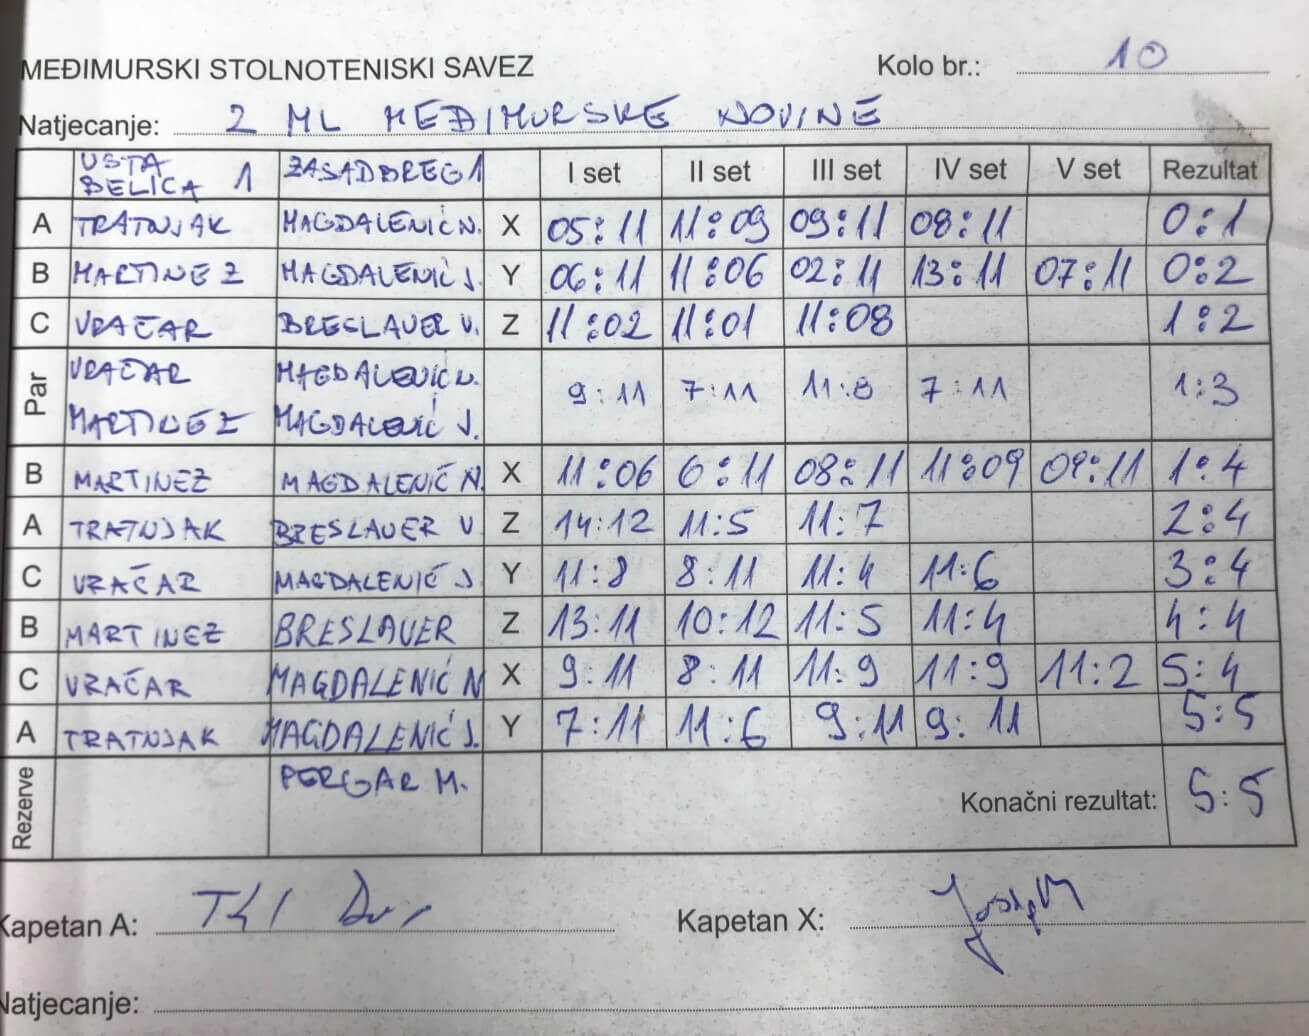 MEĐIMURSKI STOLNOTENISKI SAVEZ Kolo br.: 10
Natjecanje: 2 ML MEĐIMURSKE NOVINE
USTA BELICA 1 ZASADBREG 1 I set II set III set IV set V set Rezultat
A TRATNJAK MAGDALENIĆ N. X 05:11 11:09 09:11 08:11 0:1
B MARTINEZ MAGDALENIĆ J. Y 06:11 11:06 02:11 13:11 07:11 0:2
C VRAČAR BRESLAUER V. Z 11:02 11:01 11:08 1:2
Par VRAČAR MAGDALENIĆ N. 9:11 7:11 11:8 7:11 1:3
MARTINEZ MAGDALENIĆ J.
B MARTINEZ MAGDALENIĆ N. X 11:06 6:11 08:11 11:09 09:11 1:4
A TRATNJAK BRESLAUER V Z 14:12 11:5 11:7 2:4
C VRAČAR MAGDALENIĆ J. Y 11:8 8:11 11:4 11:6 3:4
B MARTINEZ BRESLAUER Z 13:11 10:12 11:5 11:4 4:4
C VRAČAR MAGDALENIĆ N X 9:11 8:11 11:9 11:9 11:2 5:4
A TRATNJAK MAGDALENIĆ J. Y 7:11 11:6 9:11 9:11 5:5
Rezerve PERGAR M. Konačni rezultat: 5:5
Kapetan A: Kapetan X:
Natjecanje: